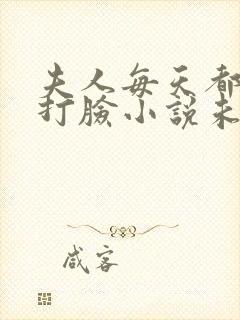 夫人每天都
打臉小說未
咸客